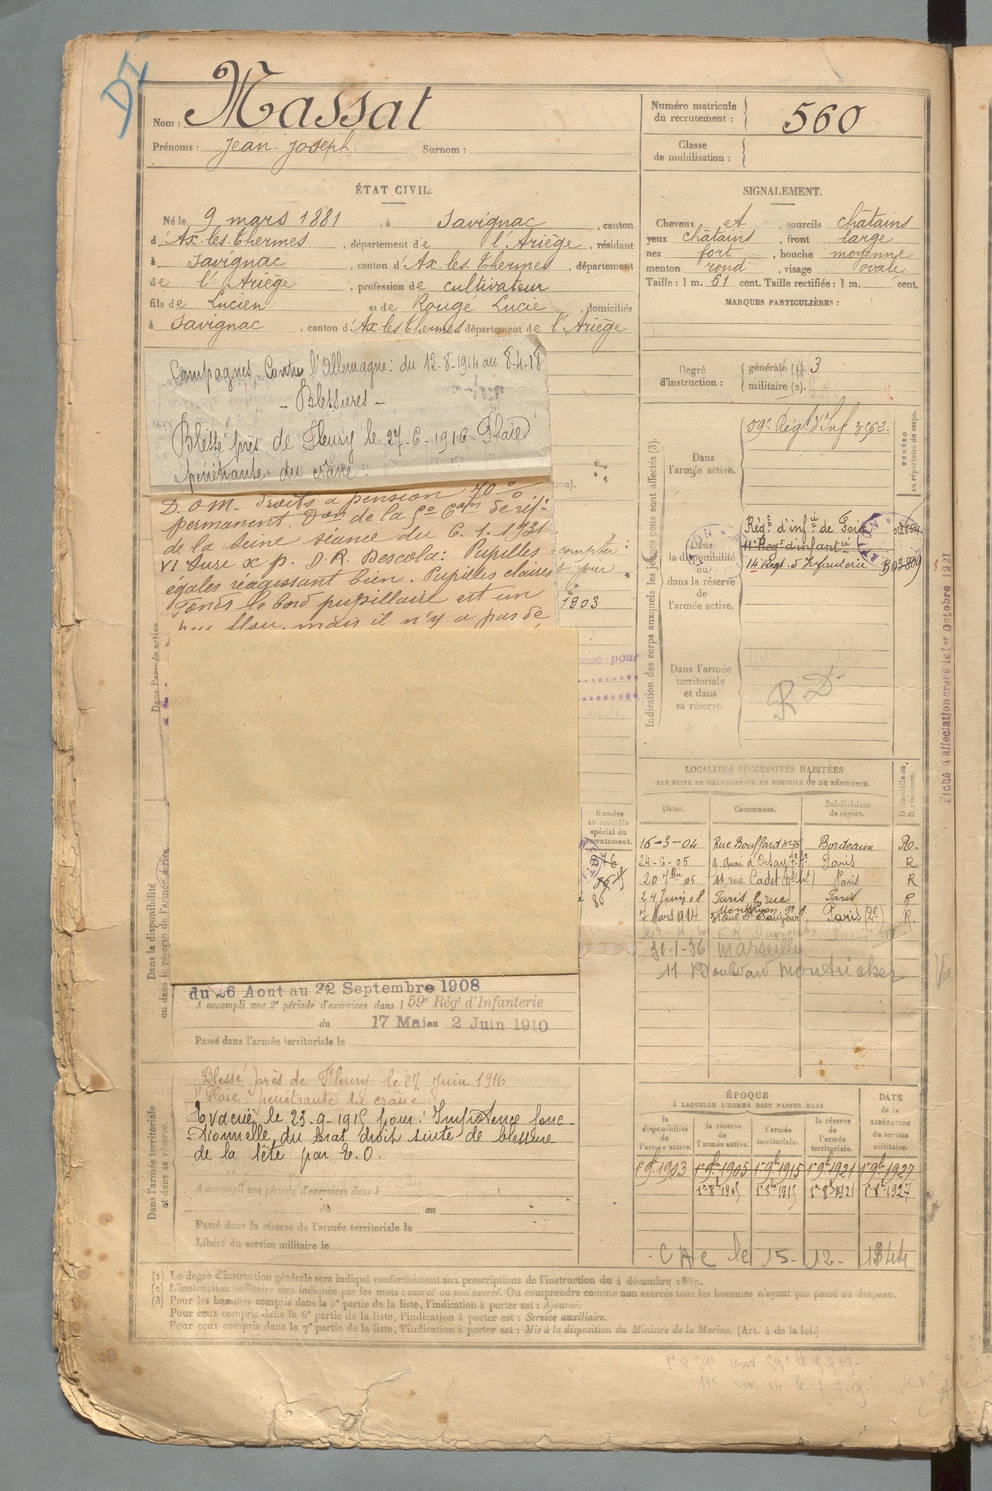 DI
Nom : Massat
Prénoms : Jean Joseph. Surnom :
Numéro matricule du recrutement : 560
Classe de mobilisation :
ÉTAT CIVIL.
Né le 9 mars 1881, à Savignac, canton
d'Ax-les-Thermes, département de l'Ariège, résidant
à Savignac, canton d'Ax-les-Thermes, département
de l'Ariège, profession de cultivateur
fils de Lucien et de Rougé Lucie, domiciliés
à Savignac, canton d'Ax-les-Thermes département de l'Ariège
SIGNALEMENT.
Cheveux et, sourcils châtains
yeux châtains, front large
nez fort, bouche moyenne
menton rond, visage ovale
Taille : 1 m. 61 cent. Taille rectifiée : 1 m. cent.
MARQUES PARTICULIÈRES :
Campagnes Contre l'Allemagne : du 12-8-1914 au 8-4-18
- Blessures -
Blessé près de Fleury le 27-6-1916 Plaie
pénétrante du crâne.
D.O.M. droits à pension 70 %
permanent. Don de la Con de réf.
de la Seine séance du 6.1.1931
égales réagissant bien. Pupilles claires
mais il n'y a pas de
compter :
1903
Degré d'instruction : générale (1). 3
militaire (2).
Indication des corps auxquels les jeunes gens sont affectés (3).
Dans l'armée active.
59e Régt d'Inf 3562.
NUMÉRO au répertoire du corps.
Dans la disponibilité ou dans la réserve de l'armée active.
Régt d'infie de Foix
11e Régt d'infantie
14e Régt d'Infanterie
Dans l'armée territoriale et dans sa réserve.
R.D.
Fiche d'affectation créée le 1er Octobre 1921
LOCALITÉS SUCCESSIVES HABITÉES
PAR SUITE DE CHANGEMENTS DE DOMICILE OU DE RÉSIDENCE.
Dates. Communes. Subdivisions de région. Domicile ou Résidence.
16-3-04 Rue Bouffard Bordeaux R.
24-6-05 quai d'Orsay Paris R
20 7bre 05 rue Cadet Paris R
24 Juin 08 Paris Paris R
7 Mars 1914 Paris R.
30-1-36 Marseille
11 Boulevard Montricher
Numéro au contrôle spécial du recrutement.
Dans l'armée active.
Dans la disponibilité ou dans la réserve de l'armée active.
du 26 Aout au 22 Septembre 1908
A accompli une 2e période d'exercices dans l 59e Régt d'Infanterie
du 17 Mai au 2 Juin 1910
Passé dans l'armée territoriale le
Dans l'armée territoriale et dans sa réserve.
Blessé près de Fleury le 27 Juin 1916
"Plaie pénétrante du crâne"
Evacué le 23-9-1915 pour : Impotence fonc-
tionnelle du bras droit suite de blessure
de la tête par E.O.
A accompli une période d'exercices dans l
du au
Passé dans la réserve de l'armée territoriale le
Libéré du service militaire le
ÉPOQUE
A LAQUELLE L'HOMME DOIT PASSER DANS
la disponibilité de l'armée active. la réserve de l'armée active. l'armée territoriale. la réserve de l'armée territoriale. DATE de la LIBÉRATION du service militaire.
1903 1905 1915 1921 1927
1905 1915 1921 1927
le 15-12-
(1) Le degré d'instruction générale sera indiqué conformément aux prescriptions de l'instruction du 4 décembre 1889.
(2) L'instruction militaire sera indiquée par les mots : exercé ou non exercé. On comprendra comme non exercés tous les hommes n'ayant pas passé au drapeau.
(3) Pour les hommes compris dans la 5e partie de la liste, l'indication à porter est : Ajourné.
Pour ceux compris dans la 6e partie de la liste, l'indication à porter est : Service auxiliaire.
Pour ceux compris dans la 7e partie de la liste, l'indication à porter est : Mis à la disposition du Ministre de la Marine. (Art. 4 de la loi.)